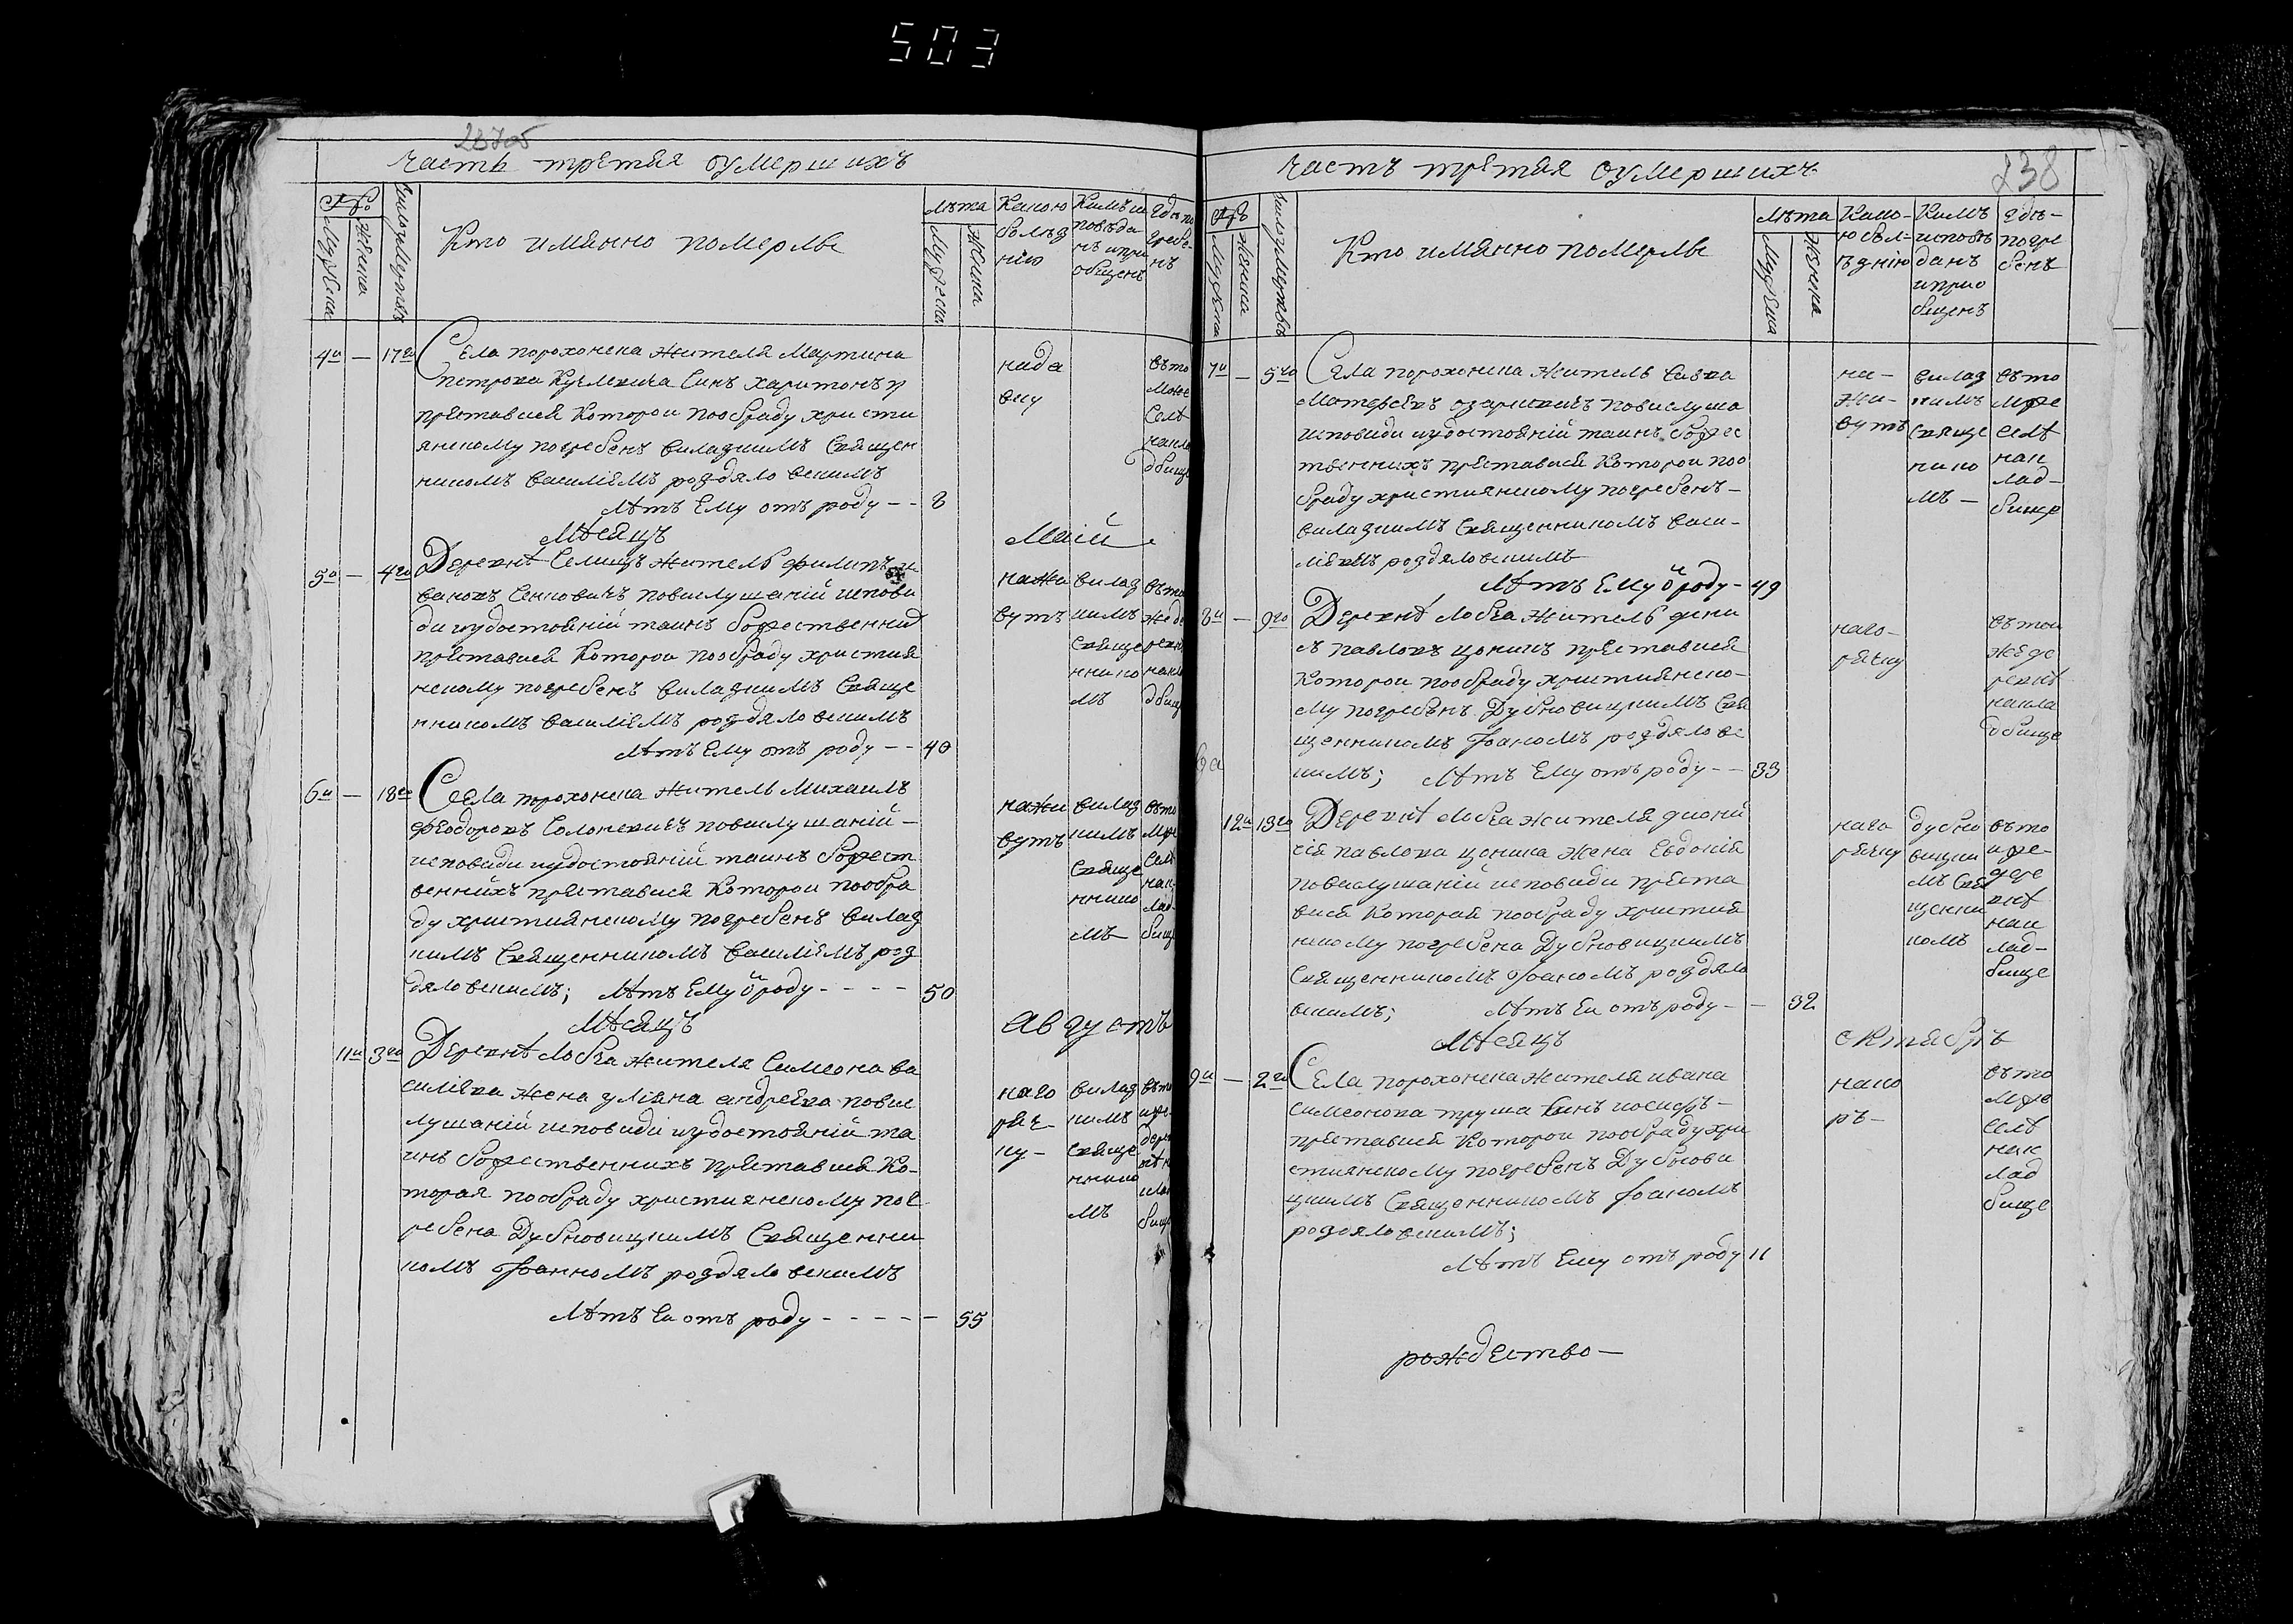 503
часть трЕтая оумершихъ
№
Мужеска
Женска
Число умертвія
Кто имянно померлъ
лѣта
Мужеска
Женска
Какою болѣзнію
Кимъ исповѣданъ и приобщенъ
Где погребенъ
4й — 17го Села порохонска жителя Мартина
петрова Кучлевича Синъ харитонъ у
прЕставися Которои пообраду христи
янскому погребенъ виладзкимъ Священ
никомъ василіемъ роздяловскимъ
лѣтъ Ему отъ роду - - 8
нада
вну
Мѣсяцъ Маій
5й — 4го ДеревнѣСемицъ житель филипъ и
вановъ Сенковичъ повислушаній испови
ди иудостояній таинъ божественних
прЕставися Которои пообраду христия
нскому погребенъ виладзкимъ Свяще
нникомъ василіемъ роздяловскимъ
лѣтъ Ему отъ роду - - 40
нажи
вутъ
вилад
зкимъ
Свяще
ннико
мъ
6й — 18го Села порохонска житель Михаилъ
феодоровъ Солоневичъ повислушаній -
исповиди иудостояній таинъ божест
веннихъ прЕставися Которои пообра
ду християнскому погребенъ вилад
зкимъ Священникомъ василіемъ роз
дяловскимъ; лѣтъ Ему ѿ роду - - - - 50
нажи
вутъ
вилад
зкимъ
Свяще
ннико
мъ
Мѣсяцъ Августъ
11й 3го Деревнѣ лобча жителя Симеона ва
силіева жена уліяна андреева повис
лушаній исповиди иудостояній та
инъ божественнихъ прЕставися Ко-
торая пообраду християнскому пог
ребена Дубновицкимъ Священни
комъ Іоанномъ роздяловскимъ
лѣтъ Еи отъ роду - - - - - 55
наго
ряч
ку -
вилад
зкимъ
Свяще
ннико
мъ
часть трЕтая оумершихъ
238
№
Мужеска
Женска
Число умертвія
Кто имянно померлъ
лѣта
Мужеска
Женска
Како-
ю бол-
ѣзнію
Кимъ
исповѣ
данъ
и прио
бщенъ
где -
погре
бенъ
7й — 5го Села порохонска житель Савка
повислуша
исповиди иудостояній таинъ божес
твеннихъ прЕставися Которои поо
браду християнскому погребенъ -
виладзкимъ Священникомъ васи-
ліемъ роздяловскимъ
лѣтъ Ему ѿ роду - 49
на -
жи -
вутъ
вилад
зкимъ
Свяще
нико
мъ -
въто
мже
селѣ
нак
лад -
бище
8й — 9го Деревнѣ лобча житель дени
съ павловъ цоникъ прЕставися
Которои пообраду християнско-
му погребенъ Дубновицкимъ Свя
щенникомъ Іоаномъ роздялове
кимъ; лѣтъ Ему отъ роду - - 33
наго -
рячку
втои
жеде
ревнѣ
накла
дбище
12й 13го Деревнѣ лобча жителя диони
сія павлова цоника жена Евдокія
повислушаній исповиди прЕста
вися Которая пообраду християн
нскому погребена Дубновицкимъ
Священникомъ Іоаномъ роздяло
вскимъ; лѣтъ Еи отъ роду - - 32
наго
рячку
дубно
вицки
мъ Свя
щенни
комъ
въто
иже -
дере
внѣ
нак
лад -
бище
Мѣсяцъ октябръ
9й — 2го Села порохонска жителя ивана
симеонова труша синъ иосифъ -
прЕставися Которои пообраду хри
стиянскому погребенъ Дубнови
цкимъ Священникомъ Іоаномъ
роздяловскимъ;
лѣтъ Ему отъ роду 11
нако
ръ -
въто
мже
селѣ
нак
лад
бище
рождество —